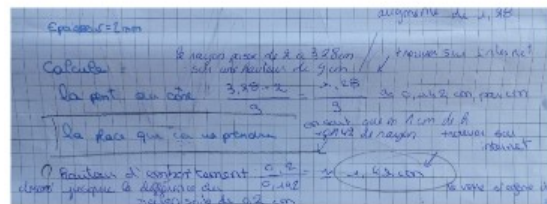 augmente de 1,28
Epaisseur = 2mm
le rayon passe de 2 a 3,28cm
sur une hauteur de 9cm
trouver sur internet
Calculer :
la pente du cône 3,28 - 2 / 9 = 1,28 / 9 ≈ 0,142 cm, par cm
la place que ça va prendre
on sait que 1 cm de h
+0,142 de rayon
trouver sur internet
hauteur d'emboitement : 0,2 / 0,142 ≈ 1,43 cm
jusque la différence du
de 0,2 cm